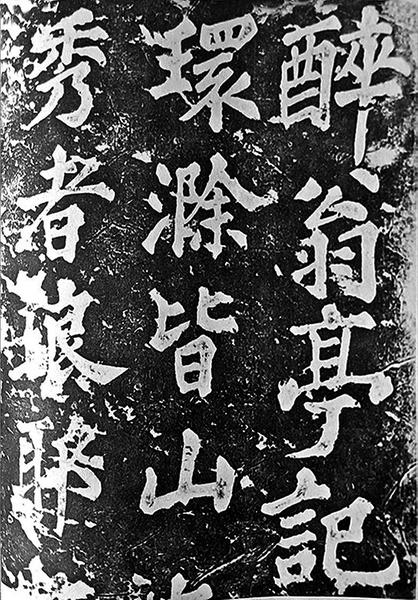 醉翁亭記
環滁皆山
秀者琅耶